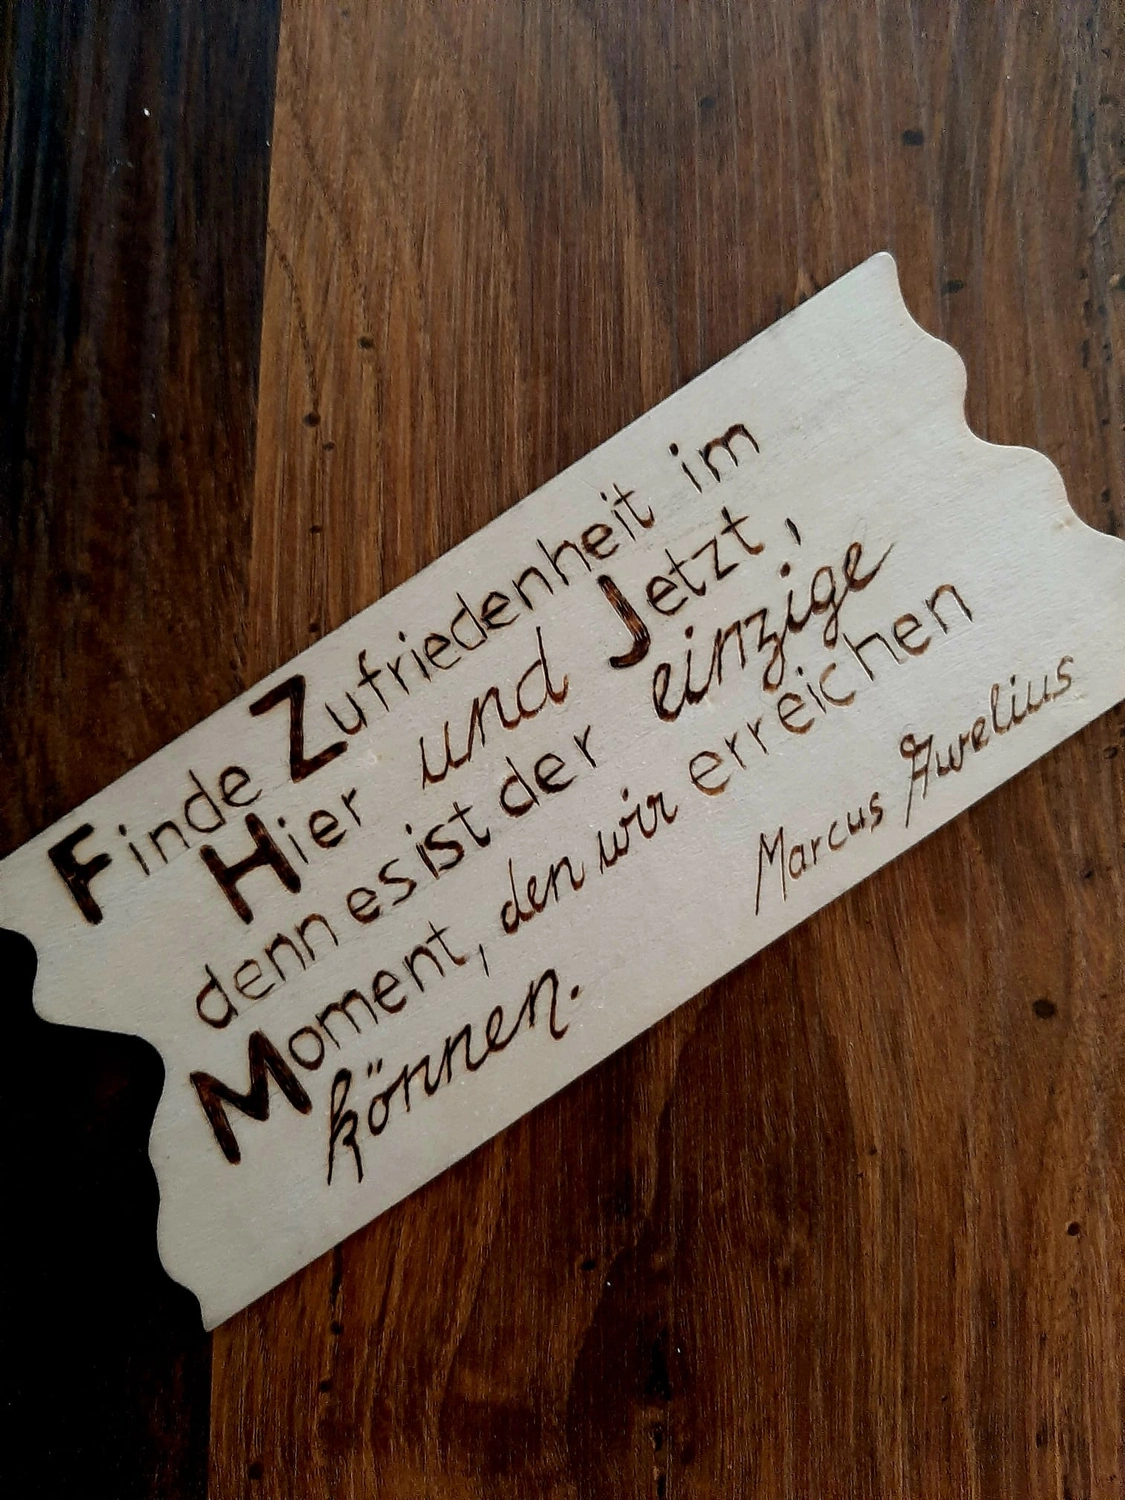 Finde Zufriedenheit im
Hier und Jetzt,
denn es ist der einzige
Moment, den wir erreichen
können.
Marcus Aurelius